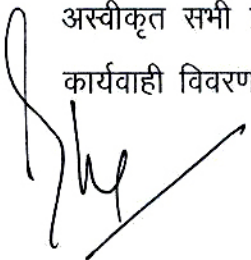 अस्वीकृत सभी
कार्यवाही विवरण